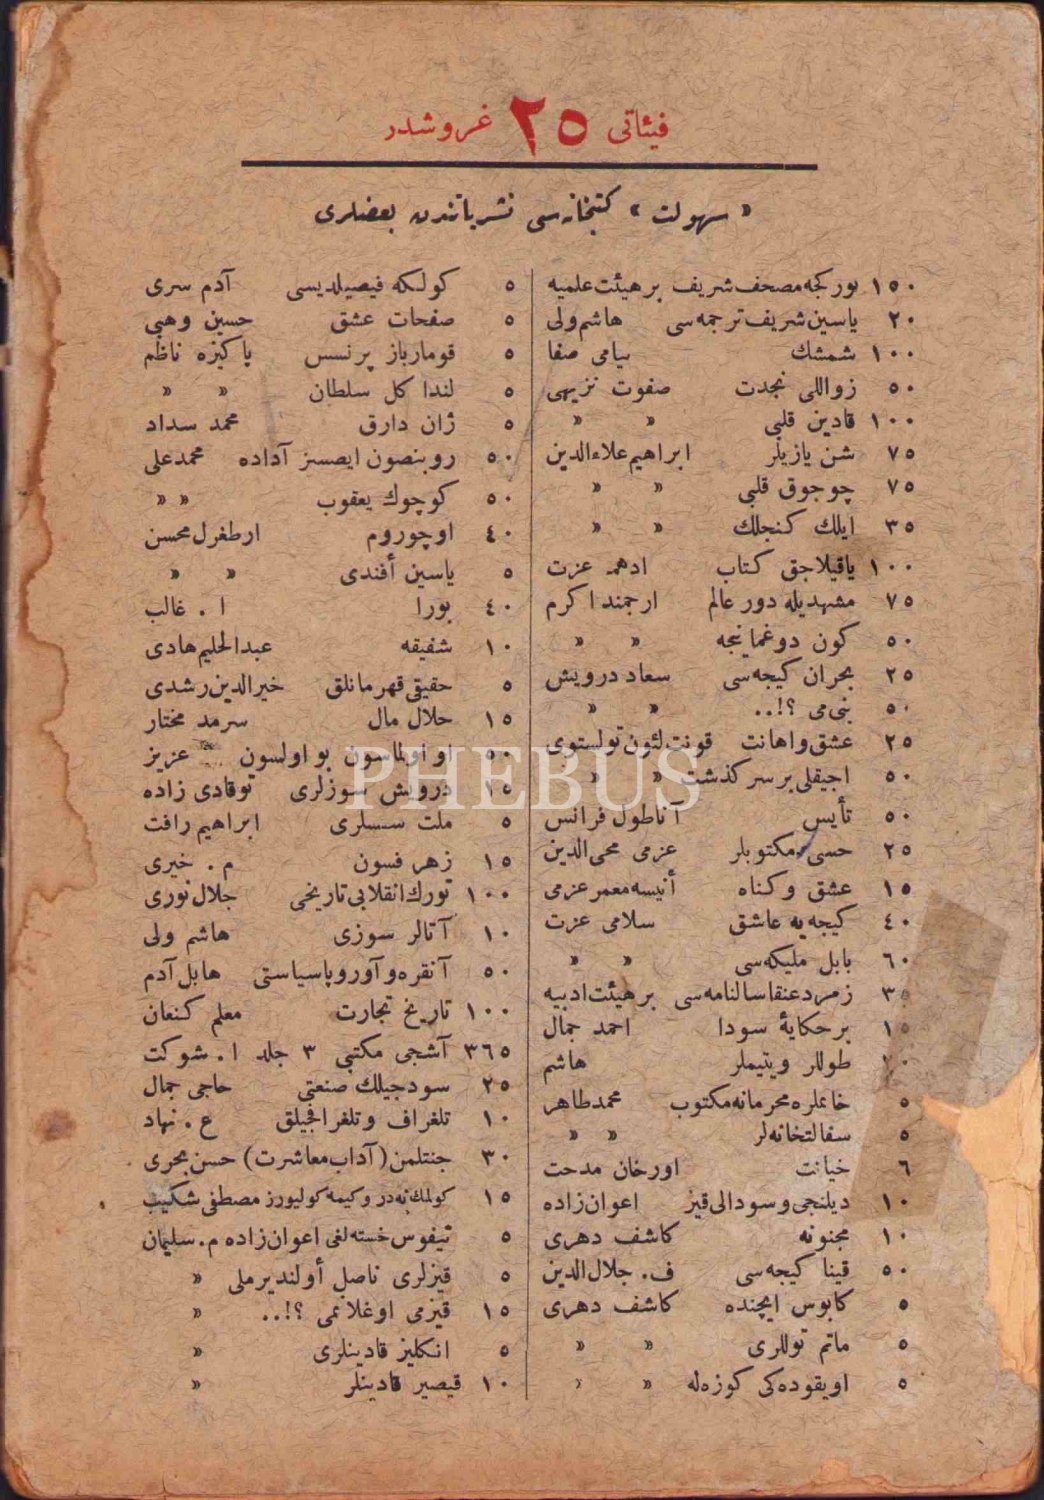 فیئاتی ٢٥ غروشدر
« سهولت » کتبخانه‌سی نشریاتندن بعضلری
١٥٠ تورکجه مصحف شریف برهیئت علمیه
٢٠ یاسین شریف ترجمه‌سی هاشم ولی
١٠٠ شمشك پیامی صفا
٥٠ زواللی نجدت صفوت نزیهی
١٠٠ قادین قلبی « «
٧٥ شن یازیلر ابراهیم علاءالدین
٧٥ چوجوق قلبی « «
٣٥ ایلك کنجلك « «
١٠٠ یاقیلاجق کتاب ادهم عزت
٧٥ مشهدیله دور عالم ارجمند اکرم
٥٠ کون دوغماینجه « «
٢٥ بحران کیجه‌سی سعاد درویش
٥٠ بنی‌می ؟!.. « «
٢٥ عشق واهانت قونت لئون تولستوی
٥٠ اجیقلی بر سرکذشت « «
٥٠ تأیس آناطول فرانس
٢٥ حسی مکتوبلر عزمی محی‌الدین
١٥ عشق وکناه أنیسه معمر عزمی
٤٠ کیجه‌یه عاشق سلامی عزت
٦٠ بابل ملیکه‌سی « «
٣٥ زمردعنقا سالنامه‌سی برهیئت ادبیه
١٥ برحکایهٔ سودا احمد جمال
٢٠ طوللر ویتیملر هاشم
٥ خانملره محرمانه مکتوب محمدطاهر
٥ سفالتخانه‌لر « «
٦ خیانت اورخان مدحت
١٠ دیلنجی وسودالی قیز اعوان‌زاده
١٠ مجنونه کاشف دهری
٥٠ قینا کیجه‌سی ف. جلال‌الدین
٥ کابوس ایچنده کاشف دهری
٥ ماتم توللری « «
٥ اویقوده‌کی کوزه‌له « «
٥ کولکه فیصیلدیسی آدم سری
٥ صفحات عشق حسین وهبی
٥ قومارباز پرنسس پاکیزه ناظم
٥ لندا کل سلطان « «
٥ ژان دارق محمد سداد
٥٠ روبنصون ایصسز آداده محمدعلی
٥٠ کوچوك یعقوب « «
٤٠ اوچوروم ارطغرل محسن
٥ یاسین أفندی « «
٤٠ بورا ا . غالب
١٠ شفیقه عبدالحلیم هادی
٥ حقیقی قهرمانلق خیرالدین رشدی
١٥ حلال مال سرمد مختار
٥٠ او اولماسون بو اولسون عزیز
١٥ درویش سوزلری توقادی زاده
٥ ملت سسلری ابراهیم رافت
١٥ زهر فسون م . خیری
١٠٠ تورك انقلابی تاریخی جلال نوری
١٠ آتالر سوزی هاشم ولی
٥٠ آنقره وآوروپا سیاستی هابل آدم
١٠٠ تاریخ تجارت معلم کنعان
٣٦٥ آشجی مکتبی ٣ جلد ا . شوکت
٢٥ سودجیلك صنعتی حاجی جمال
١٠ تلغراف وتلغرافجیلق ع . نهاد
٣٠ جنتلمن (آداب معاشرت) حسن بحری
١٥ کولمك نه‌در وکیمه کولیورز مصطفی شکیب
٥ تیفوس خسته لغی اعوان‌زاده م . سلیمان
٥ قیزلری ناصل أولندیرملی «
١٥ قیزمی اوغلانمی ؟!.. «
٥ انکلیز قادینلری «
١٠ قیصیر قادینلر «
PHEBUS